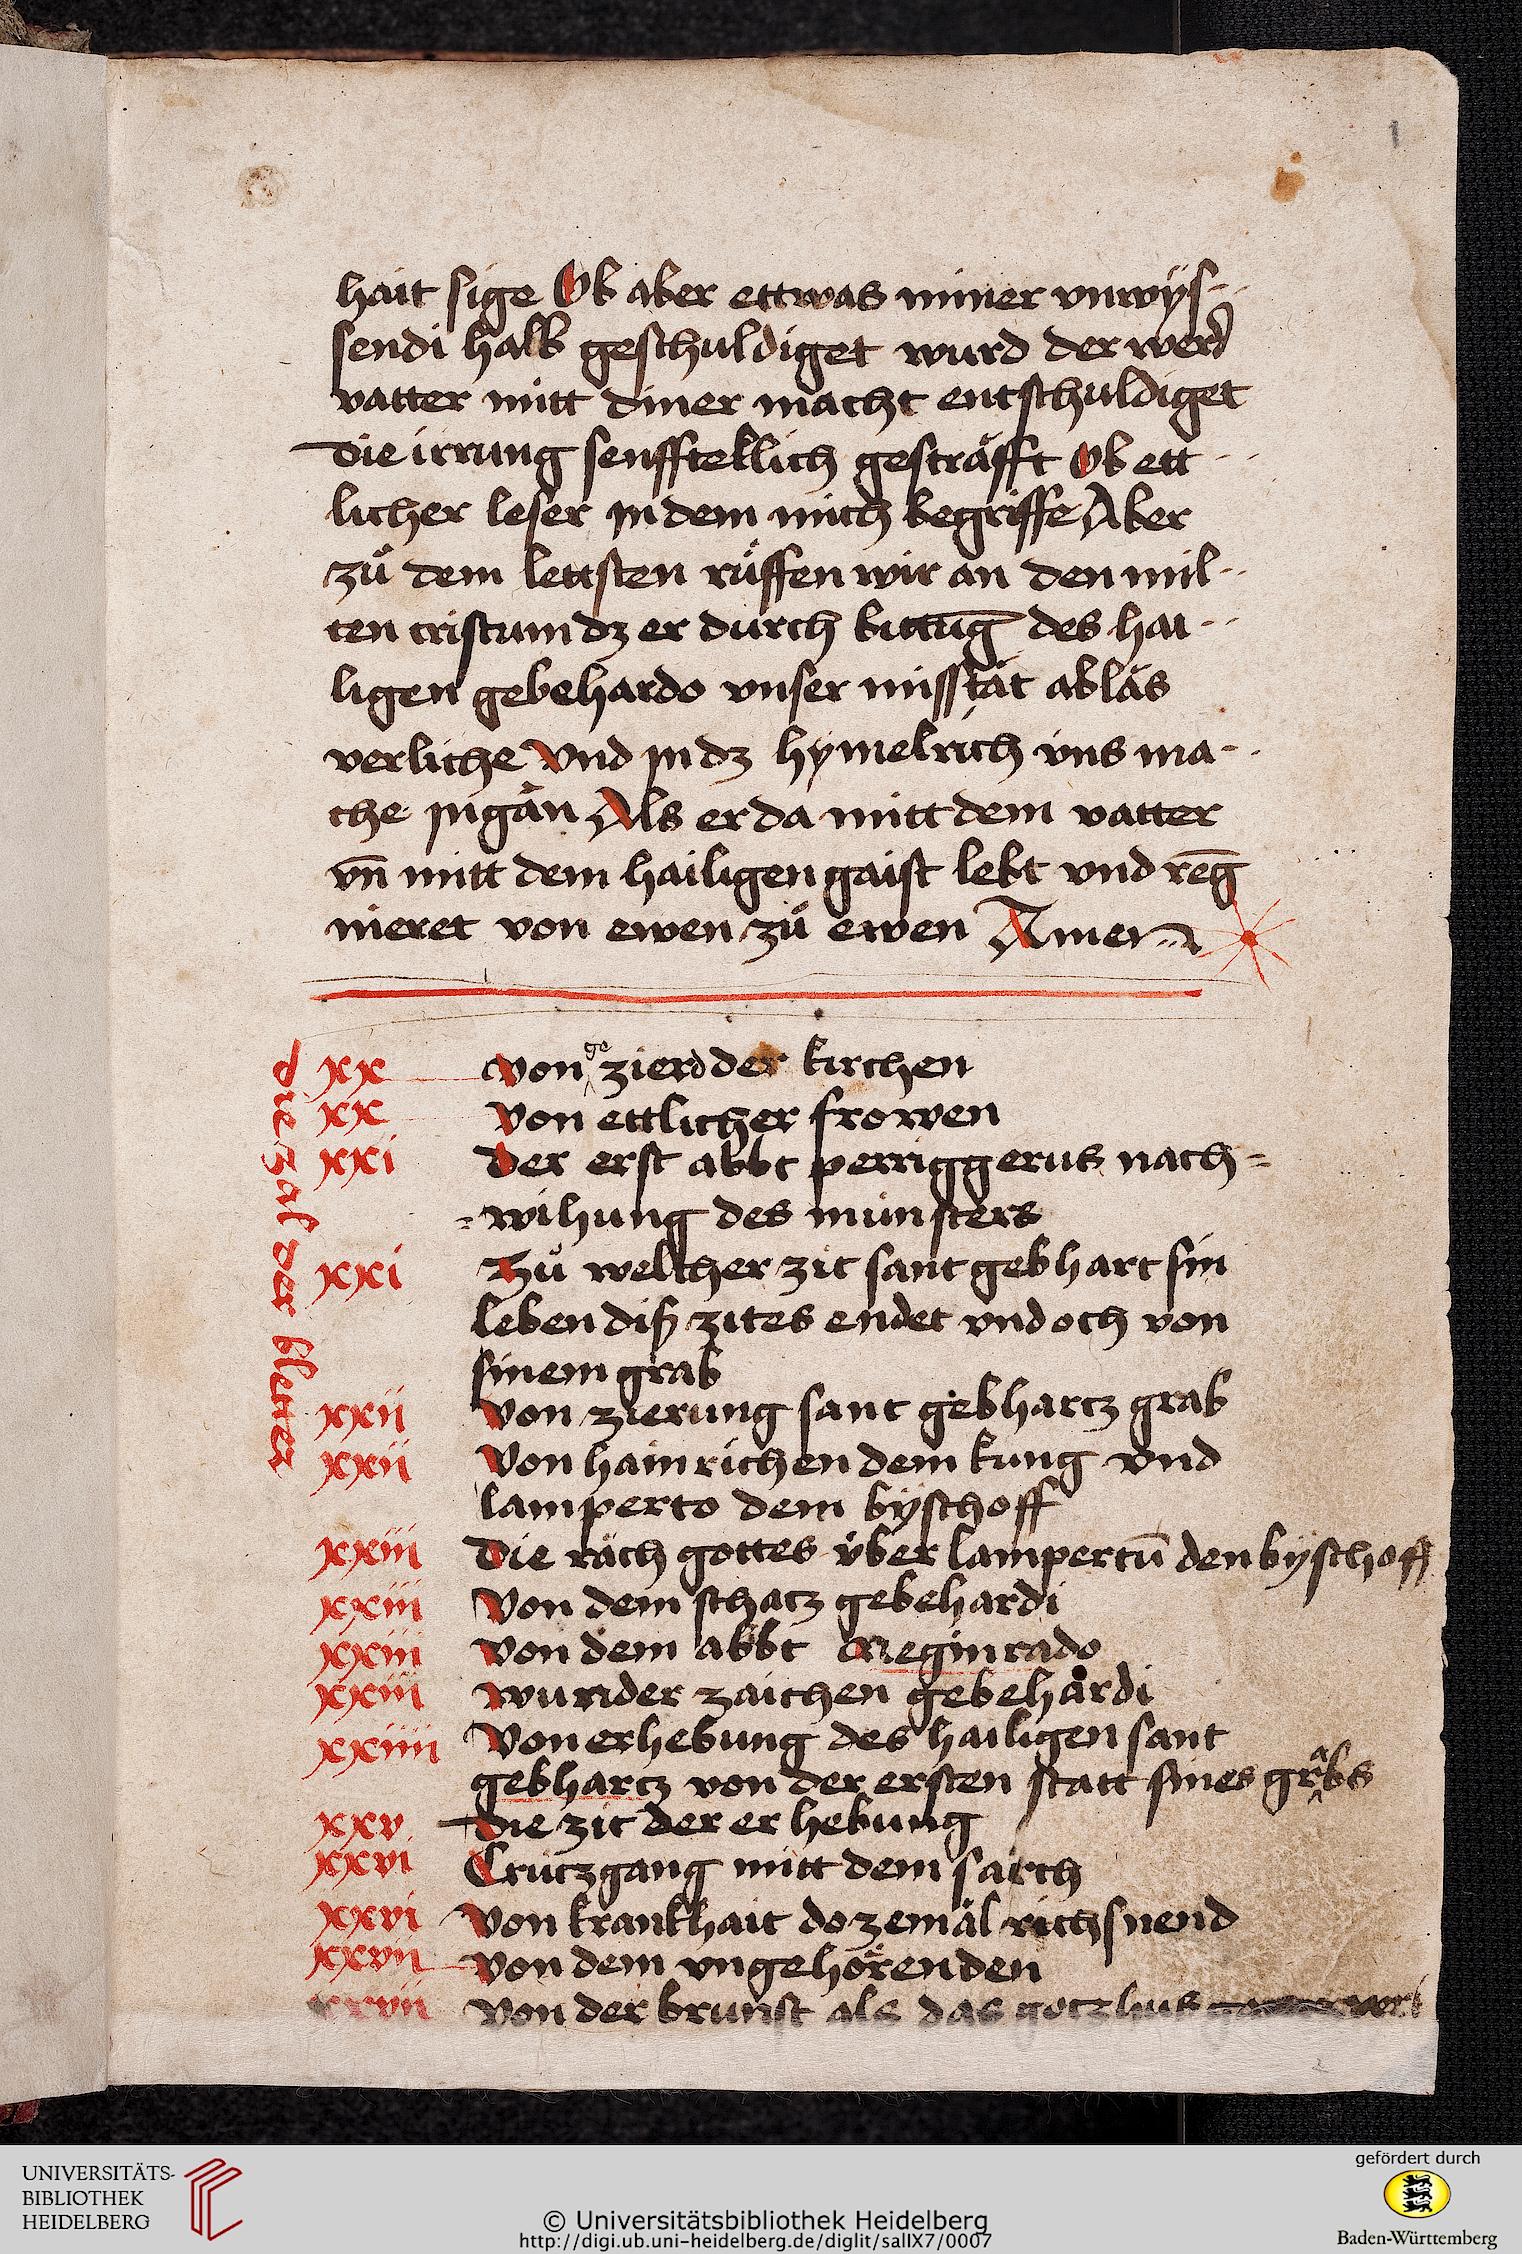 1
hait sige Ob aber ettwas miner vnwÿs-
sendi halb geschuldiget wurd der werd
vatter mitt diner macht entschuldiget
die irrung senffteklich gesträfft Ob ett
licher leser in dem mich begriffe Aber
zů dem lettsten růffen wir an den mil-
ten cristum dz er durch bittūg des hai-
ligen gebehardo vnser misstät abläs
verliche Vnd in dz hymelrich vns ma-
che ingän Als er da mitt dem vatter
vn̄ mitt dem hailigen gaist lebt vnd rēg
nieret von ewen zů ewen Amen
Die zal der bletter
xx von gezierd der kirchen
xx von ettlicher frowen
xxi der erst abbt perriggerus nach=
=wihung des münsters
xxi Zů welcher zit sant gebhart sin
leben diß zites endet vnd och von
sinem grab
xxii von zierung sant gebhartz grab
xxii von hainrichen dem kung vnd
lamperto dem bÿschoff
xxiii Die räch gottes über lampertū den bÿschoff
xxiii Von dem schatz gebehardi
xxiii von dem abbt Reginrado
xxiii wunder zaichen gebehardi
xxiiii Von erhebung des hailigen sant
gebhartz von der ersten statt sines grabs
xxv Die zit der erhebung
xxvi Crützgang mitt dem sarch
xxvi Von krankhait do zemäl richsnend
xxvii von dem vngehörenden
xxvii von der brunst als das gotzhus
UNIVERSITÄTS-
BIBLIOTHEK
HEIDELBERG
© Universitätsbibliothek Heidelberg
http://digi.ub.uni-heidelberg.de/diglit/salIX7/0007
gefördert durch
Baden-Württemberg